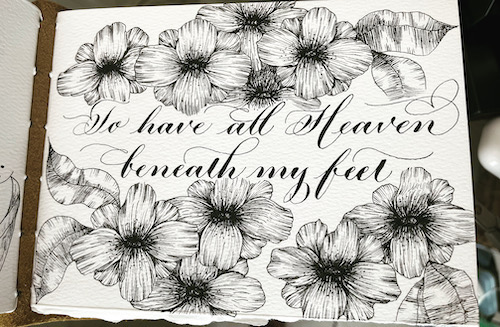 To have all Heaven
beneath my feet